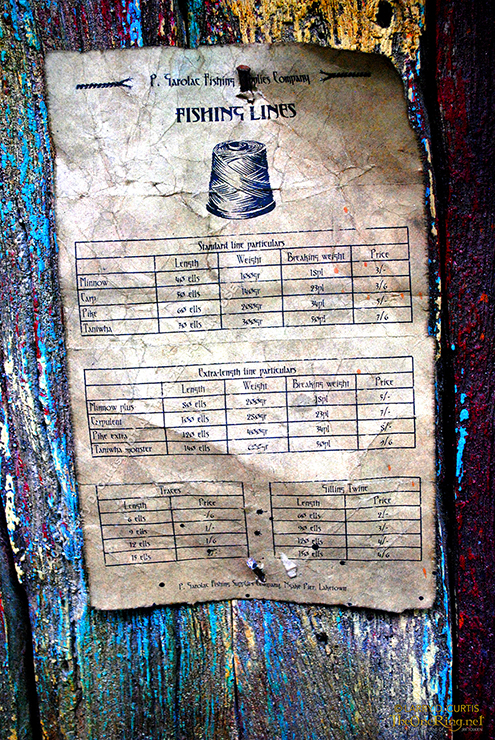 P. Sarolac Fishing Supplies Company
FISHING LINES
Standard line particulars
Length Weight Breaking weight Price
Minnow 40 ells 100gr 18pl 3/-
Carp 50 ells 140gr 23pl 3/6
Pike 60 ells 200gr 34pl 5/-
Taniwha 70 ells 300gr 50pl 7/6
Extra-length line particulars
Length Weight Breaking weight Price
Minnow plus 80 ells 200gr 18pl 5/-
Carpulent 100 ells 280gr 23pl 7/-
Pike extra 120 ells 400gr 34pl
Taniwha monster 140 ells 50pl 9/6
Traces
Length Price
6 ells /6
9 ells 1/-
12 ells 1/6
15 ells 2/-
Gilling Twine
Length Price
60 ells 2/-
90 ells 3/-
120 ells 4/-
150 ells 4/6
P. Sarolac Fishing Supplies Company, Pier, Laketown
CURTIS
TheOneRing.net